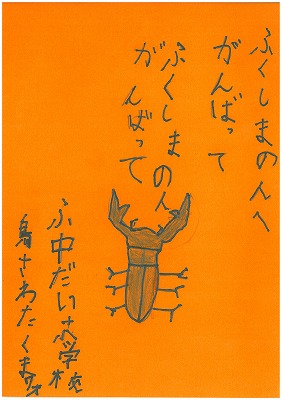 ふくしまの人へ
がんばって
ふくしまの人
がんばって
ふ中だい六小学校
さわたくま